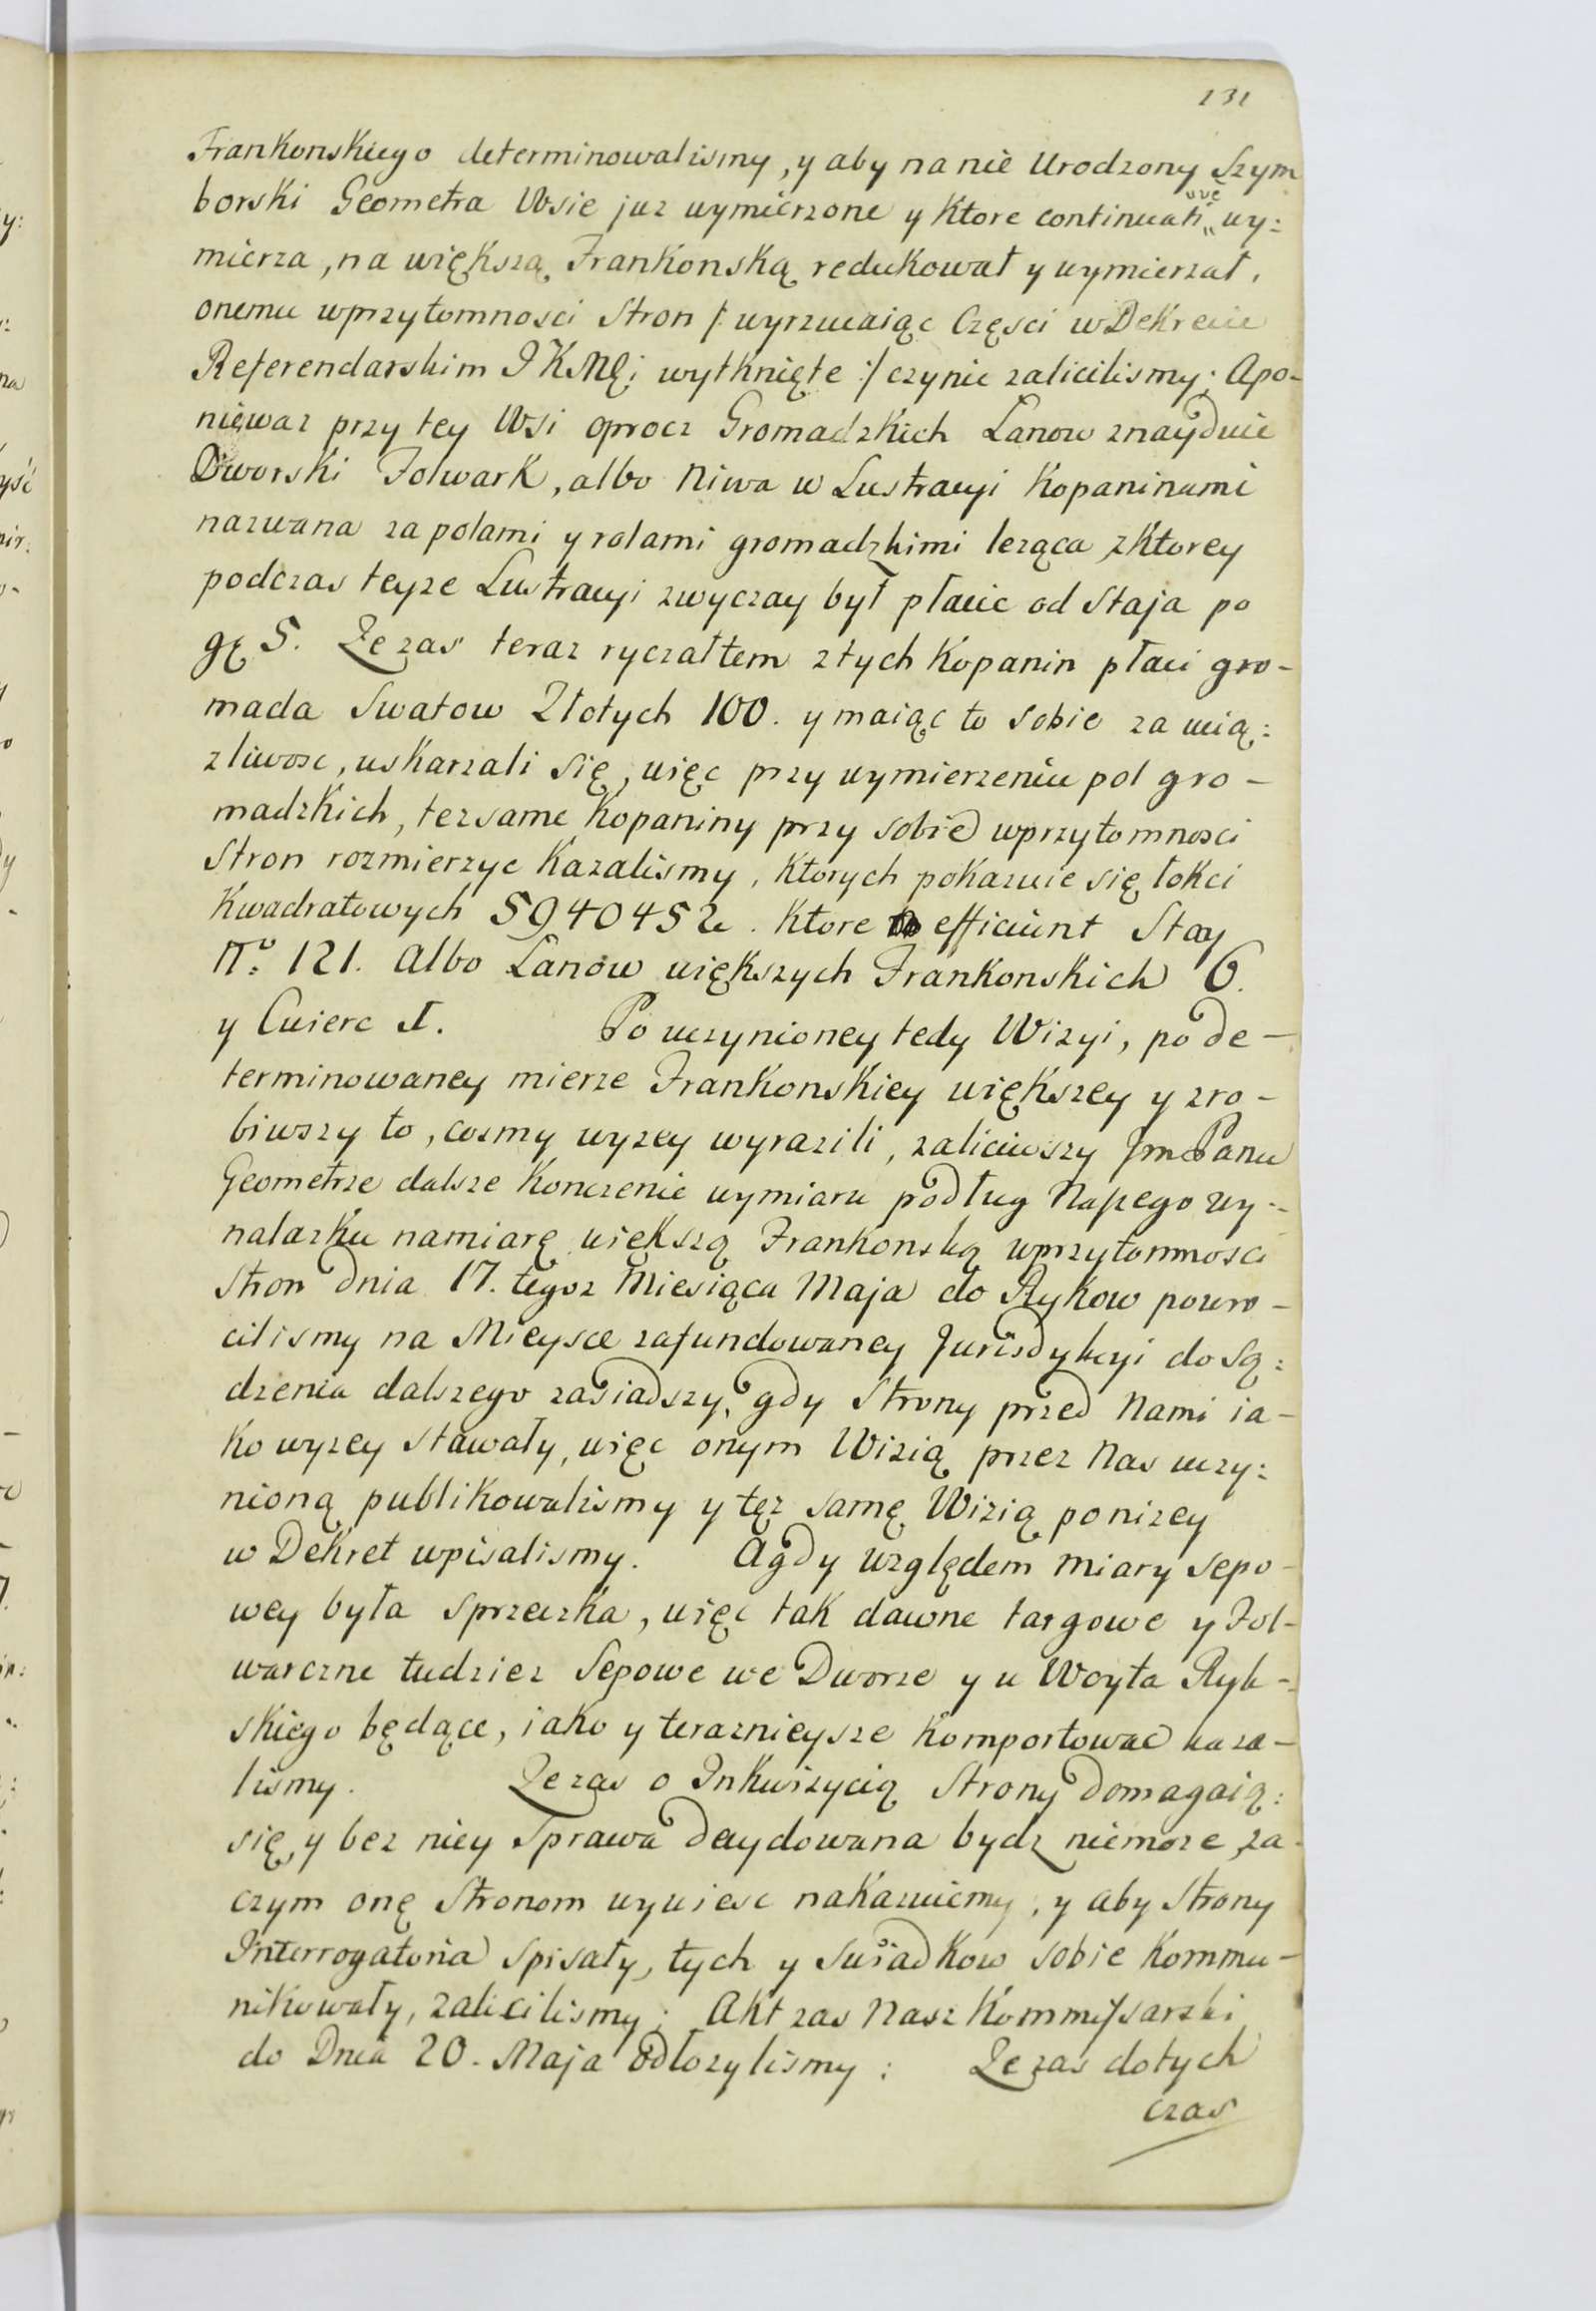 131
Frankonskiego determinowalismy, y aby na nie Urodzony Szym
borski Geometra Wsie juz wymierzone y ktore continuative wy:
mierza, na większą Frankonską redukował y wymierzał,
onemu wprzytomnosci Stron /: wyrzucaiąc Częsci w Dekrecie
Referendarskim J K Mci wytknięte :/ czynic zalicilismy; Apo-
niewaz przy tey Wsi oprocz Gromadzkich Lanow znayduie
Dworski Folwark, albo Niwa w Lustracyi Kopaninami
nazwana za polami y rolami gromadzkimi leząca zktorey
podczas teyze Lustracyi zwyczay był płacic od Staja po
gr 5. Ze zas teraz ryczałtem ztych Kopanin płaci gro-
mada Swatow Złotych 100. y maiąc to sobie za ucią:
zliwosc, uskarzali się, więc przy wymierzeniu pol gro-
madzkich, tezsame Kopaniny przy sobie wprzytomnosci
Stron rozmierzyc kazalismy, ktorych pokazuie się łokci
Kwadratowych 5940452. ktore efficiunt Stay
No: 121. albo Lanow większych Frankonskich 6.
y Cwierc 1. Po uczynioney tedy Wizyi, po de-
terminowaney mierze Frankonskiey większey y zro-
biwszy to, cosmy wyzey wyrazili, zaliciwszy Jm Panu
Geometrze dalsze konczenie wymiaru podług Naszego wy-
nalazku namiarę większą Frankonską wprzytomnosci
Stron dnia 17. tegoz Miesiąca Maja do Rykow powro-
cilismy na Mieysce zafundowaney Jurisdykcyi do Są:
dzenia dalszego zasiadszy, gdy Strony przed Nami ia-
ko wyzey stawały, więc onym Wizią przez Nas uczy:
nioną publikowalismy y tęz samę Wizią ponizey
w Dekret wpisalismy. Agdy względem miary Sepo-
wey była sprzeczka, więc tak dawne targowe y Fol-
warczne tudziez Sepowe we Dworze y u Woyta Ryk-
skiego będące, iako y teraznieysze komportowac kaza-
lismy. Ze zas o Inkwizycią Strony domagaią:
się, y bez niey Sprawa decydowana bydz niemoze, za-
czym onę Stronom wywiesc nakazuiemy, y aby Strony
Interrogatoria spisały, tych y swiadkow sobie kommu-
nikowały, zalicilismy; Akt zas Nasz Kommissarski
do Dnia 20. Maja odłozylismy: Ze zas dotych
czas